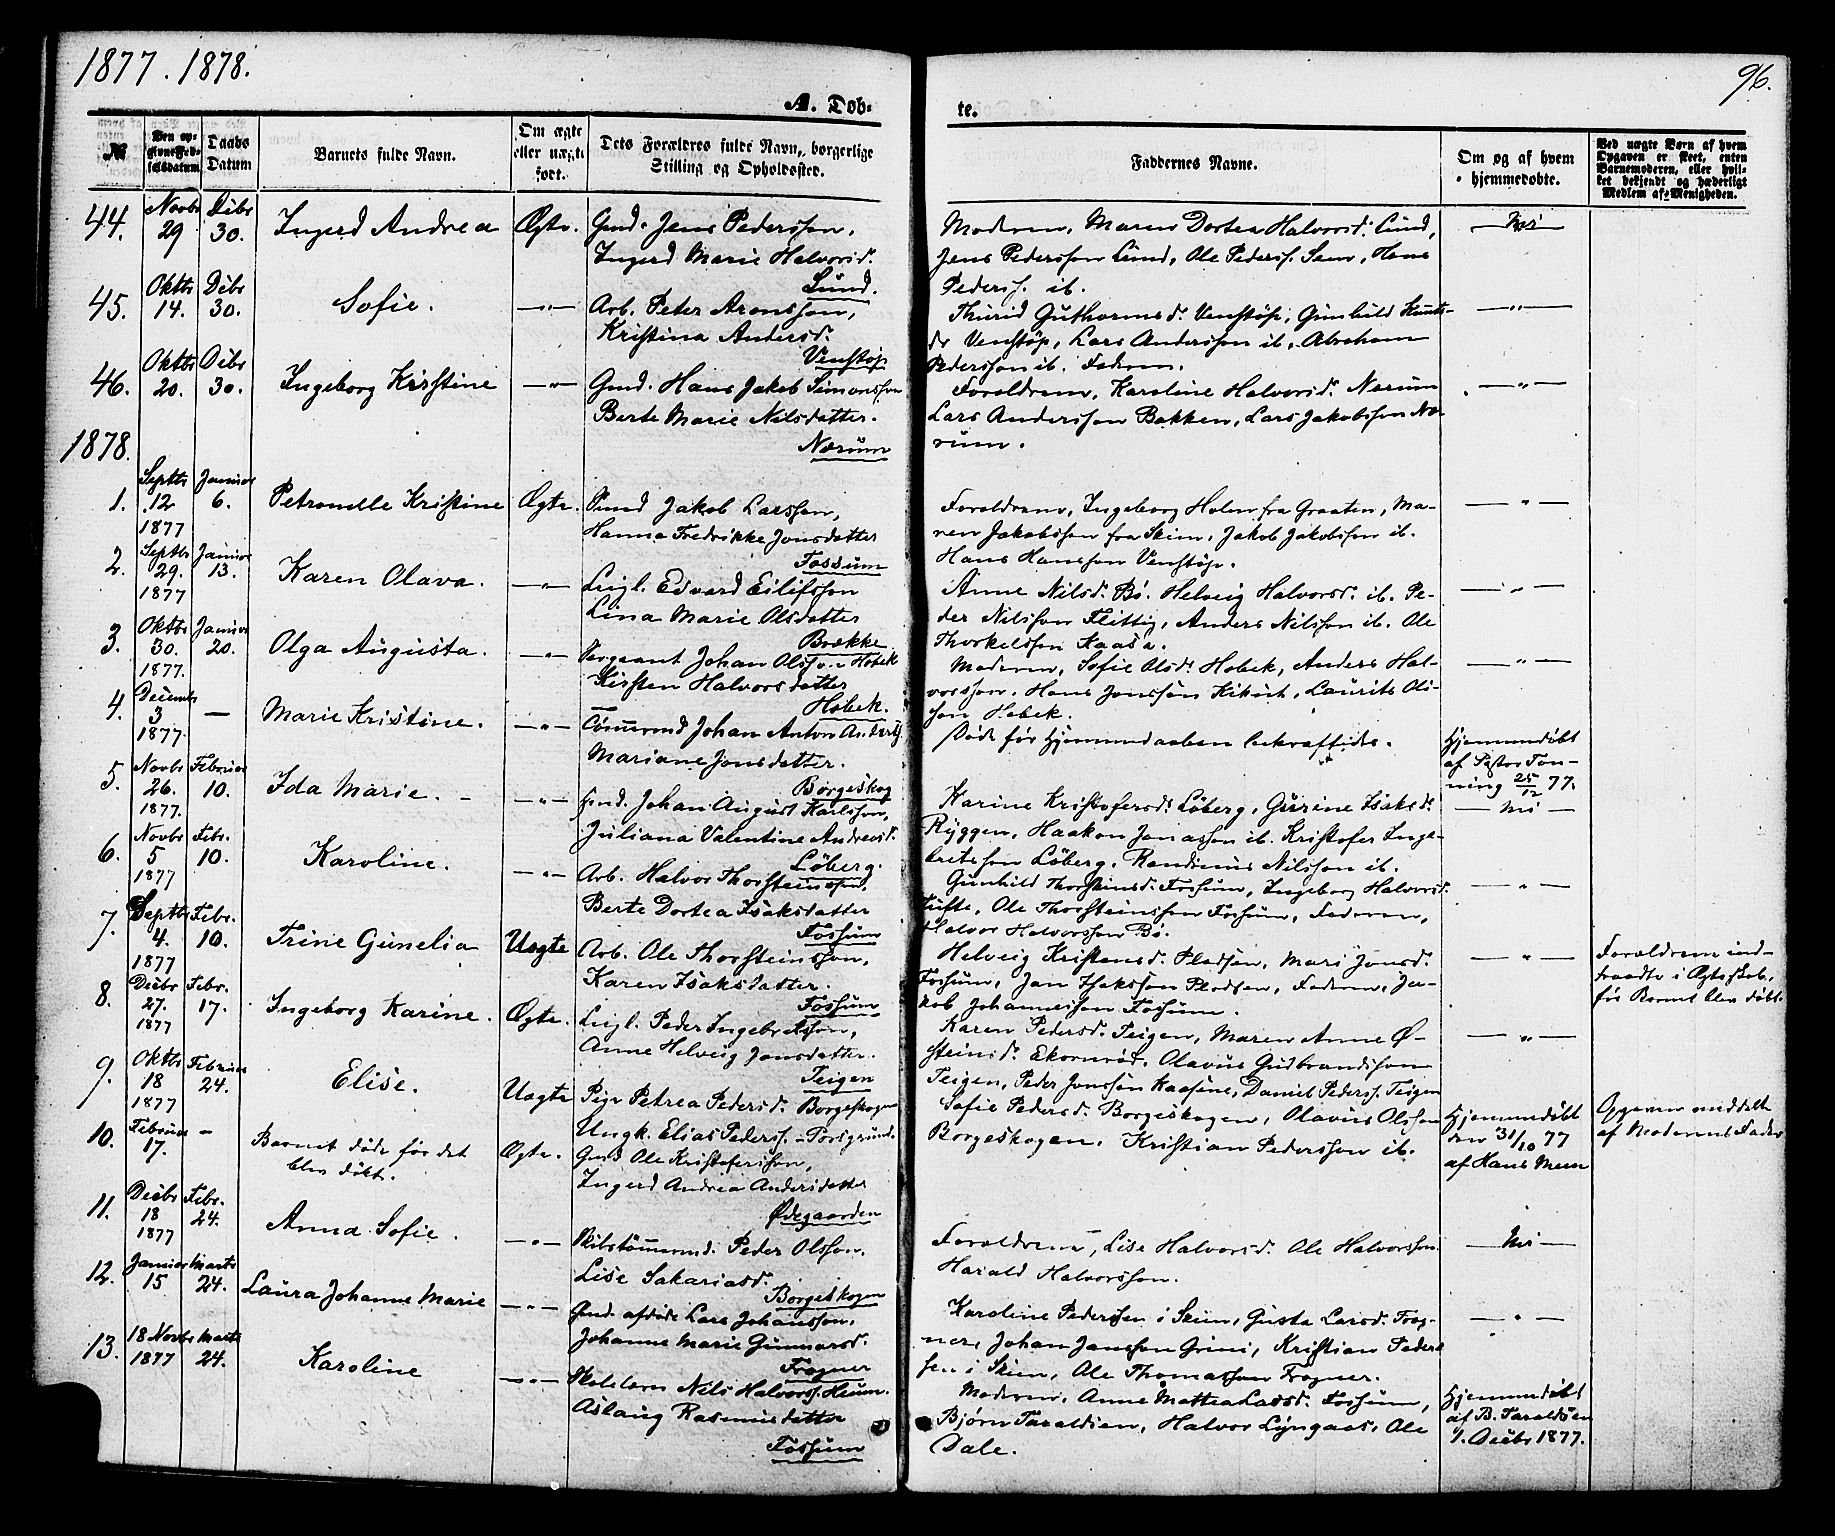 1877. 1878.
96.
A. Døb-
te.
№
Den op-
givne Fød-
selsdatum.
Daabs
Datum
Barnets fulde Navn.
Om ægte
eller uægte
født.
Dets Forældres fulde Navn, borgerlige
Stilling og Opholdssted.
Faddernes Navne.
Om og af hvem
hjemmedøbte.
Ved uægte Børn af hvem
Opgaven er skeet, enten
Barnemoderen, eller hvil-
ket bekjendt og hæderligt
Medlem af Menigheden.
44. Novbr 29 Dcbr 30. Ingerd Andrea Ægte. Gmd. Jens Pederssøn,
Ingerd Marie Halvorsd.
Lund.
Moderen, Maren Dortea Halvorsd. Lund,
Jens Pederssøn Lund, Ole Peders. Sem, Hans
Peders. ib.
Nei
45. Oktbr 14. Dcbr 30. Sofie. —"— Arb. Peter Aronssøn,
Kristina Andersd.
Venstøp
Thurid Guthormsd. Venstøp, Gunhild Knuts-
dr Venstøp, Lars Anderssøn ib., Abraham
Pederssøn ib. Faderen.
—"—
46. Oktbr 20. Dcbr 30. Ingeborg Kirstine —"— Gmd. Hans Jakob Simonssøn
Berte Marie Nilsdatter.
Nærum
Forældrene, Karoline Halvorsd. Nærum
Lars Anderssøn Bakken, Lars Jakobssøn Næ-
rum.
—"—
1878.
1. Septbr 12 1877 Januar 6. Petronelle Kristine Ægte. Gmd Jakob Larssøn,
Hanna Fredrikke Jonsdatter
Fossum
Forældrene, Ingeborg Holm fra Graaten, Ma-
ren Jakobssøn fra Skien, Jakob Jakobssøn ib.
Hans Hanssøn Venstøp.
—"—
2. Septbr 29. 1877 Januar 13. Karen Olava. —"— Leigl. Edvard Eilifssøn
Lina Marie Olsdatter
Brække
Anne Nilsd. Bø. Helveig Halvorsd. ib. Pe-
der Nilssøn Flittig, Anders Nilssøn ib. Ole
Thorkelssøn Kaasa.
—"—
3. Oktbr 30. 1877. Januar 20. Olga Augusta. —"— Sergeant Johan Olssøn Hobek
Kirsten Halvorsdatter
Hobek.
Moderen, Sofie Olsd. Hobek, Anders Hal-
vorssøn. Hans Jonssøn Kikut, Laurits Ols-
søn Hobek.
—"—
4. Decembr 3 1877. — Marie Kristine. —"— Tømmermd Johan Anton Anders.
Mariane Jonsdatter.
Børgeskog
Døde før Hjemmedaaben bekræftedes.
Hjemmedøbt
af Pastor Tøn-
ning 25/12 77.
5. Novbr 26. 1877. Februar 10. Ida Marie. —"— Gmd. Johan August Karlssøn,
Juliana Valentine Andreasd.
Løberg.
Karine Kristofersd. Løberg, Gurine Isaksd.
Ryggen, Haakon Jonassøn ib. Kristofer Inge-
bretssøn Løberg. Randinius Nilssøn ib.
Nei
6. Novbr 5 1877 Febr. 10. Karoline. —"— Arb. Halvor Thorsteinssøn,
Berte Dortea Isaksdatter
Fossum
Gunhild Thorsteinsd. Fossum, Ingeborg Halvorsd.
Tufte, Ole Thorsteinssøn Fossum, Faderen,
Halvor Halvorssøn Bø.
—"—
7. Septbr 4. 1877 Febr. 10. Trine Gunelia Uægte Arb. Ole Thorsteinssøn,
Karen Isaksdatter.
Fossum
Helveig Kristensd. Pladsen, Mari Jonsd.
Fossum, Jan Isakssøn Pladsen, Faderen, Ja-
kob Johannessøn Fossum.
—"—
Forældrene ind-
traadte i Ægteskab,
før Barnet blev døbt
8. Decbr 27. 1877 Febr. 17. Ingeborg Karine. Ægte. Leigl. Peder Ingebretssøn,
Anne Helveig Jonsdatter.
Teigen
Karen Pedersd. Teigen, Maren Anne Ø-
steinsd. Ekornrød. Olavus Gudbrandssøn
Teigen, Peder Jonssøn Kaasene, Daniel Peders. Teigen
—"—
9. Oktbr 18 1877 Februar 24. Elise. Uægte Pige Petrea Pedersd. Børgeskogen
Ungk. Elias Peders. – Porsgrund.
Sofie Pedersd. Børgeskogen, Olavus Olssøn
Børgeskogen, Kristian Pederssøn ib.
Hjemmedøbt
den 31/10 77
af Hans Meen
Opgaven meddelt
af Moderens Fader
10. Februar 17. — Barnet døde før det
blev døbt. Ægte. Gmd Ole Kristoferssøn,
Ingerd Andrea Andersdatter
Ødegaarden
11. Decbr 18 1877 Febr. 24. Anna Sofie. —"— Skibstømmermd. Peder Olssøn.
Lise Sakariasd.
Børgeskogen
Forældrene, Lise Halvorsd. Ole Halvorssøn
Harald Halvorssøn.
Nei
12. Januar 15 Marts 24. Laura Johanne Marie —"— Gmd. afdøde Lars Johanssøn,
Johanne Marie Gunnarsd.
Frogner
Karoline Pedersen i Skien, Gusta Larsd. Frog-
ner, Johan Janssøn Grini, Kristian Peder-
sen i Skien, Ole Thomassøn Frogner.
—"—
13. 18 Novbr 1877 Marts 24. Karoline —"— Skolelærer Nils Halvors. Heum.
Aslaug Rasmusdatter
Fossum
Moderen, Anne Mattea Larsd. Fossum,
Bjørn Taraldsen, Halvor Lyngaas, Ole
Dale.
Hjemmedøbt
af B. Taraldsen
1. Decbr 1877.